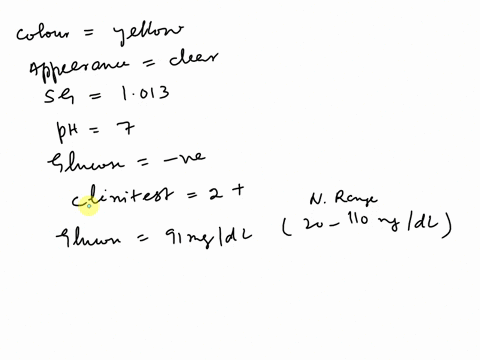 Colour = yellow
Appearance = clear
SG = 1.013
pH = 7
Glucose = -ve
Clinitest = 2 +
N. Range
Glucose = 91 mg/dL (20 - 110 mg/dL)